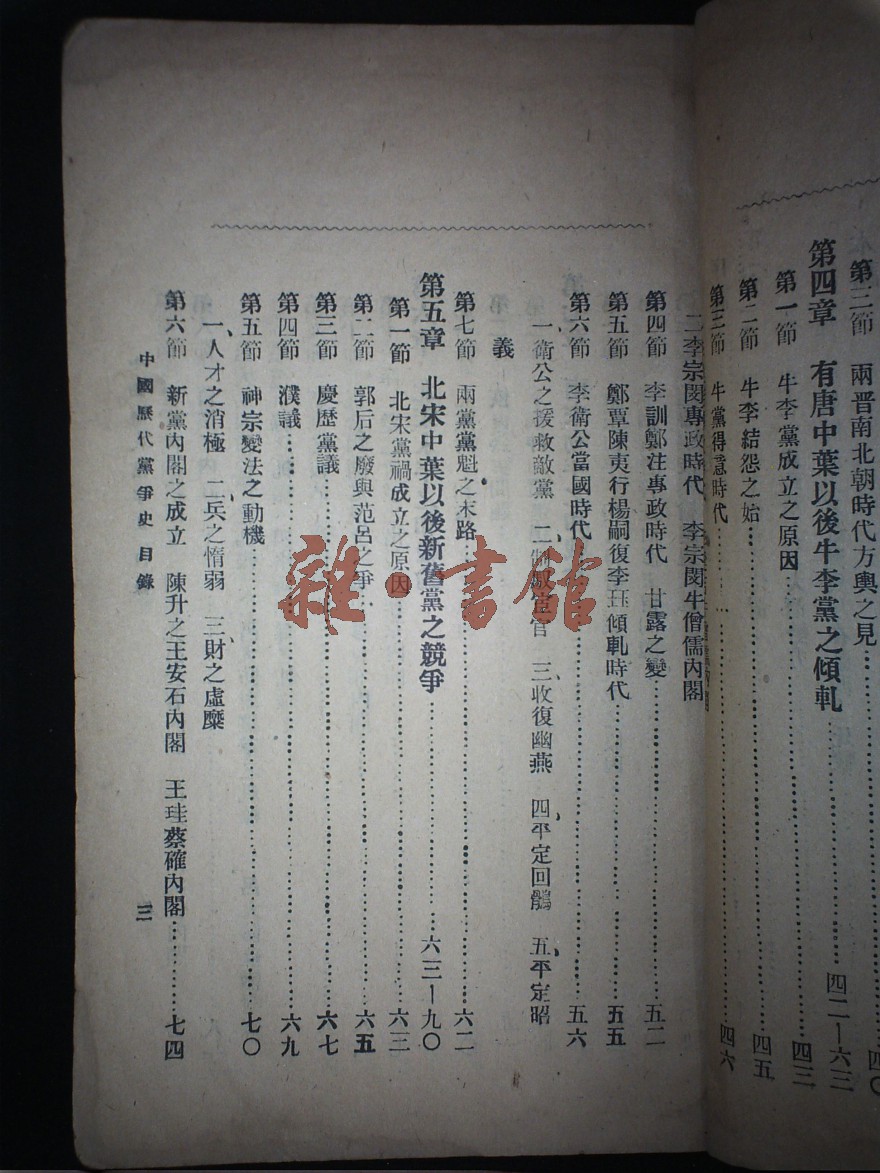 第三節　兩晋南北朝時代方輿之見………四〇
第四章　有唐中葉以後牛李黨之傾軋………四二—六三
第一節　牛李黨成立之原因………四三
第二節　牛李結怨之始………四五
第三節　牛黨得意時代………四六
二李宗閔專政時代　李宗閔牛僧儒內閣
第四節　李訓鄭注專政時代　甘露之變………五二
第五節　鄭覃陳夷行楊嗣復李珏傾軋時代………五五
第六節　李衛公當國時代………五六
一、衛公之援救敵黨　二、制　宦官　三、收復幽燕　四、平定回鶻　五、平定昭
義
第七節　兩黨黨魁之末路………六二
第五章　北宋中葉以後新舊黨之競爭………六三—九〇
第一節　北宋黨禍成立之原因………六三
第二節　郭后之廢與范呂之爭………六五
第三節　慶歷黨議………六七
第四節　濮議………六九
第五節　神宗變法之動機………七〇
一、人才之消極　二、兵之惰弱　三、財之虛糜
第六節　新黨內閣之成立　陳升之王安石內閣　王珪蔡確內閣………七四
中國歷代黨爭史　目錄　三
雜·書館